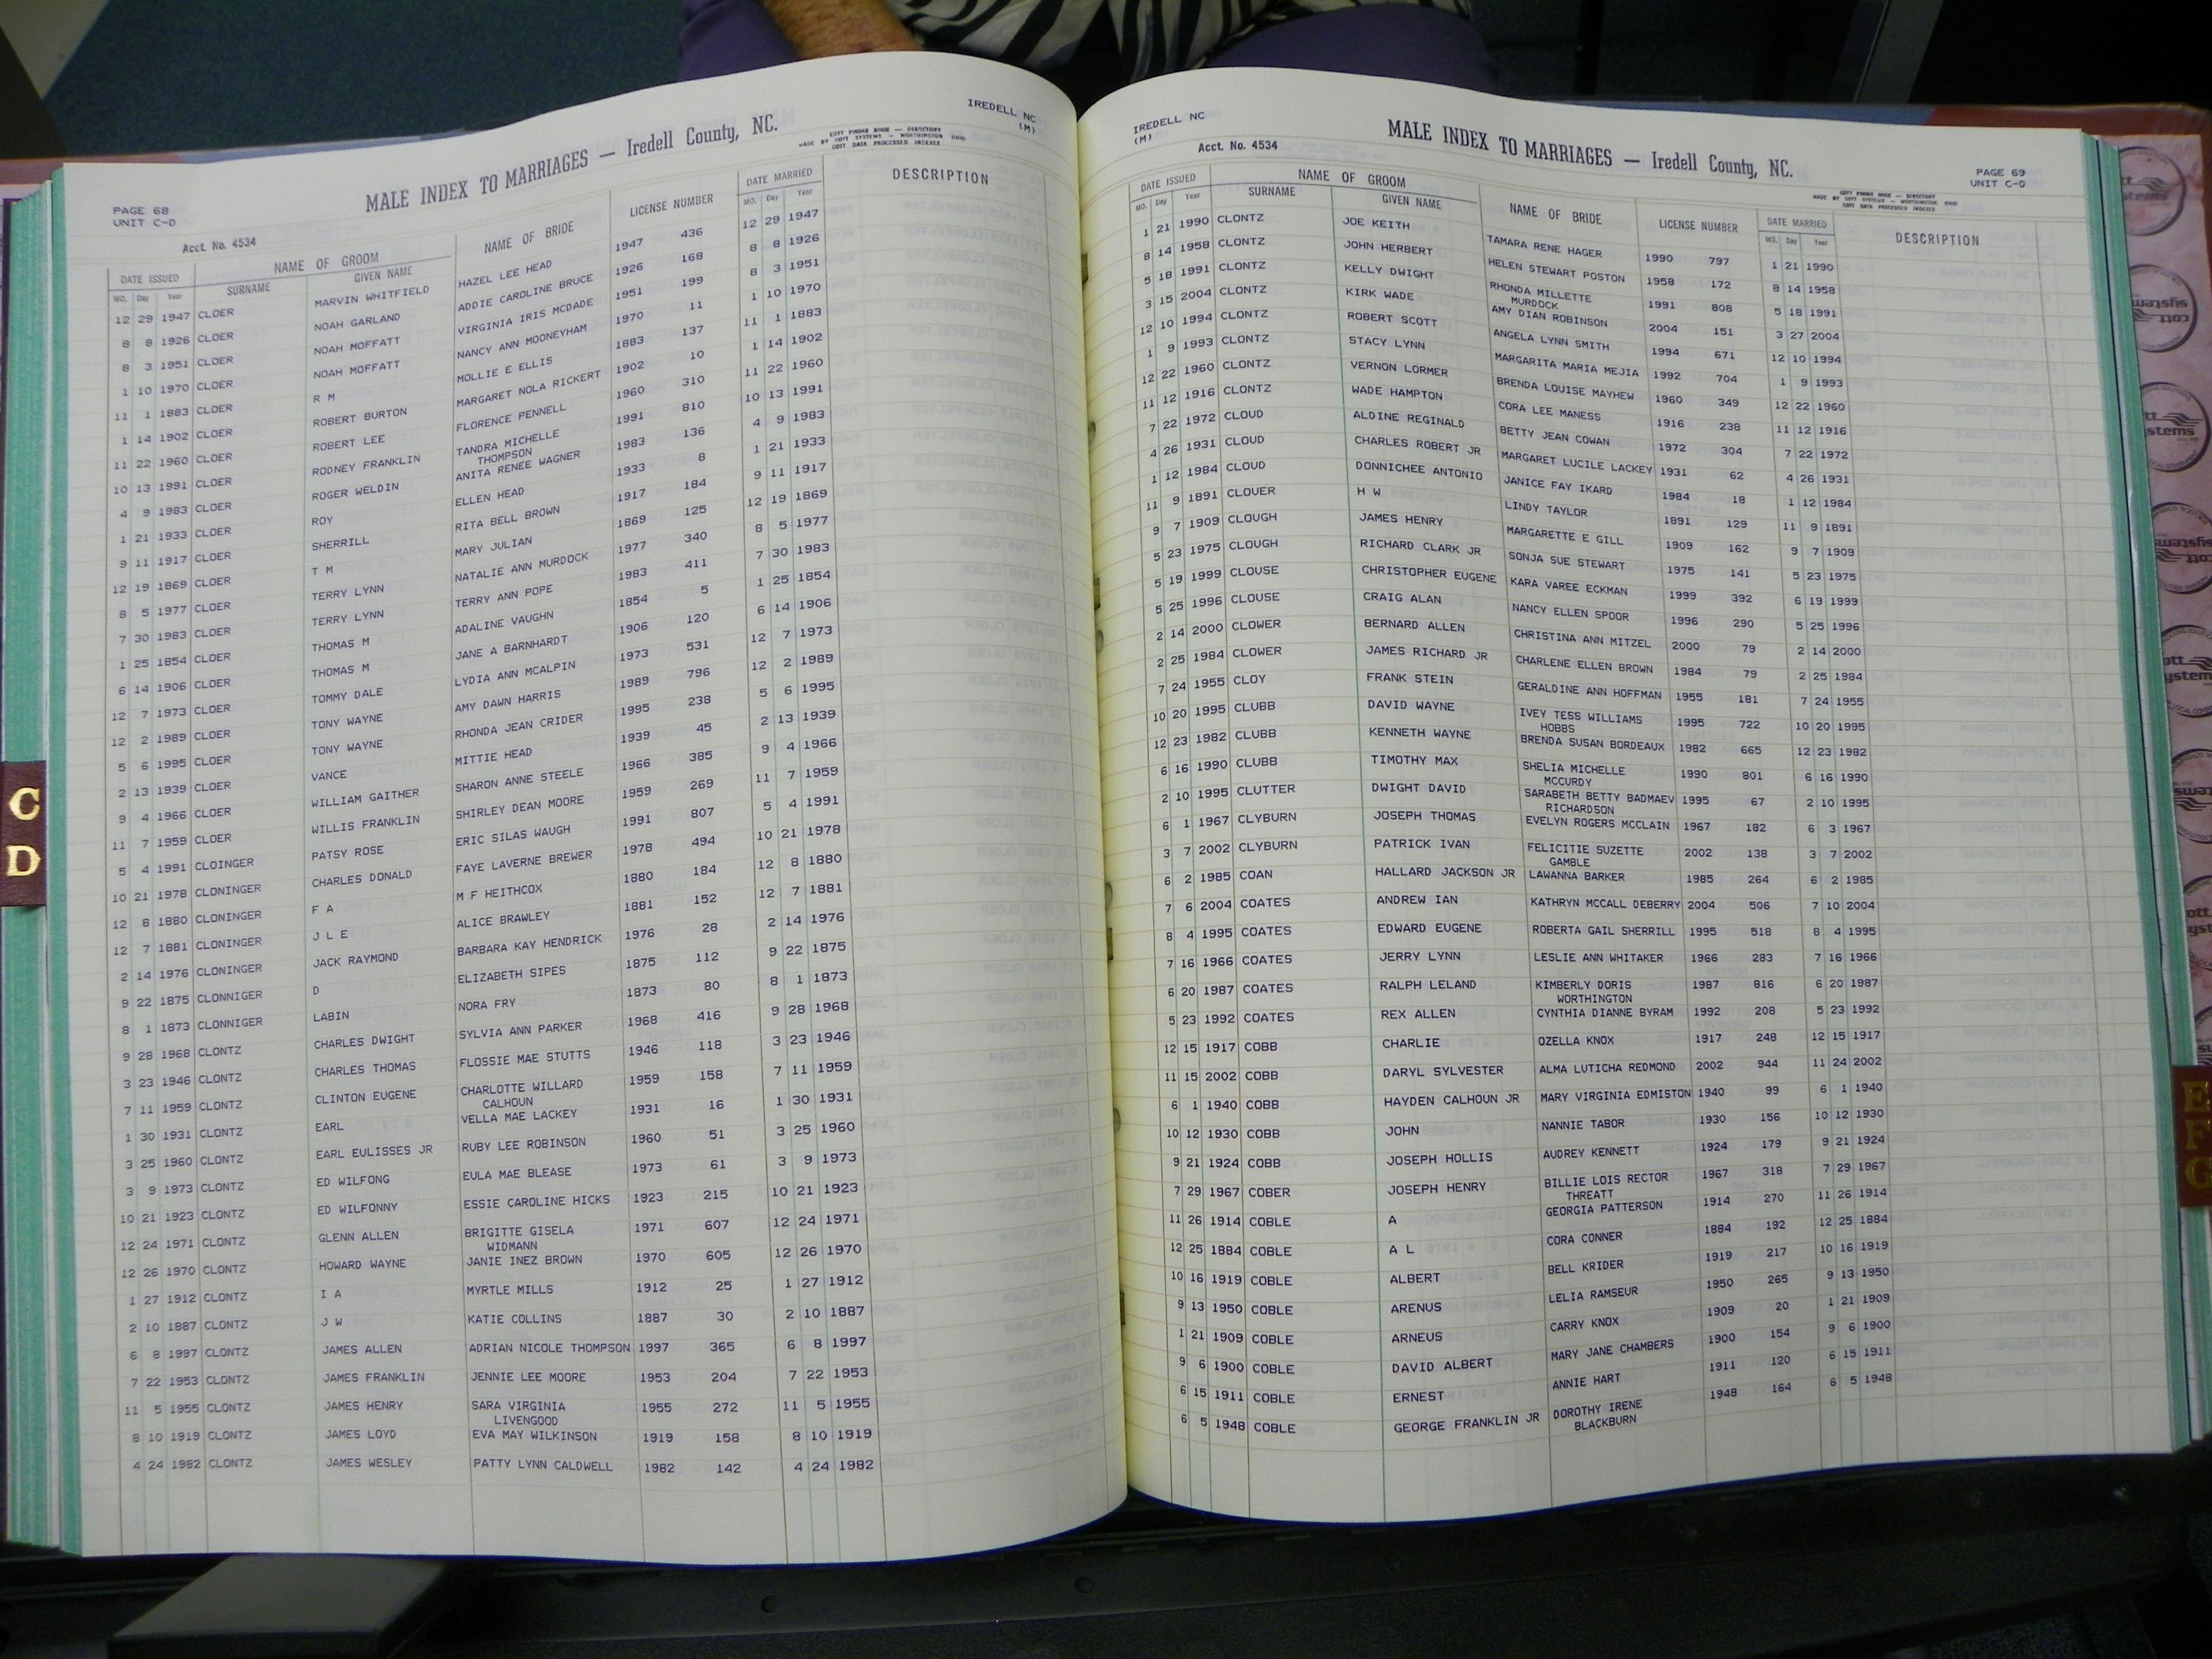 PAGE 68
UNIT C-D
MALE INDEX TO MARRIAGES — Iredell County, NC.
IREDELL NC
(M)
COTT FINDEX BOOK — DIRECTORY
MADE BY COTT SYSTEMS — WORTHINGTON OHIO
COTT DATA PROCESSED INDEXES
Acct. No. 4534
DATE ISSUED NAME OF GROOM NAME OF BRIDE LICENSE NUMBER DATE MARRIED DESCRIPTION
MO. Day Year SURNAME GIVEN NAME MO. Day Year
12 29 1947 CLOER MARVIN WHITFIELD HAZEL LEE HEAD 1947 436 12 29 1947
8 8 1926 CLOER NOAH GARLAND ADDIE CAROLINE BRUCE 1926 168 8 8 1926
8 3 1951 CLOER NOAH MOFFATT VIRGINIA IRIS MCDADE 1951 199 8 3 1951
1 10 1970 CLOER NOAH MOFFATT NANCY ANN MOONEYHAM 1970 11 1 10 1970
11 1 1883 CLOER R M MOLLIE E ELLIS 1883 137 11 1 1883
1 14 1902 CLOER ROBERT BURTON MARGARET NOLA RICKERT 1902 10 1 14 1902
11 22 1960 CLOER ROBERT LEE FLORENCE PENNELL 1960 310 11 22 1960
10 13 1991 CLOER RODNEY FRANKLIN TANDRA MICHELLE 1991 810 10 13 1991
THOMPSON
4 9 1983 CLOER ROGER WELDIN ANITA RENEE WAGNER 1983 136 4 9 1983
1 21 1933 CLOER ROY ELLEN HEAD 1933 8 1 21 1933
9 11 1917 CLOER SHERRILL RITA BELL BROWN 1917 184 9 11 1917
12 19 1869 CLOER T M MARY JULIAN 1869 125 12 19 1869
8 5 1977 CLOER TERRY LYNN NATALIE ANN MURDOCK 1977 340 8 5 1977
7 30 1983 CLOER TERRY LYNN TERRY ANN POPE 1983 411 7 30 1983
1 25 1854 CLOER THOMAS M ADALINE VAUGHN 1854 5 1 25 1854
6 14 1906 CLOER THOMAS M JANE A BARNHARDT 1906 120 6 14 1906
12 7 1973 CLOER TOMMY DALE LYDIA ANN MCALPIN 1973 531 12 7 1973
12 2 1989 CLOER TONY WAYNE AMY DAWN HARRIS 1989 796 12 2 1989
5 6 1995 CLOER TONY WAYNE RHONDA JEAN CRIDER 1995 238 5 6 1995
2 13 1939 CLOER VANCE MITTIE HEAD 1939 45 2 13 1939
9 4 1966 CLOER WILLIAM GAITHER SHARON ANNE STEELE 1966 385 9 4 1966
11 7 1959 CLOER WILLIS FRANKLIN SHIRLEY DEAN MOORE 1959 269 11 7 1959
5 4 1991 CLOINGER PATSY ROSE ERIC SILAS WAUGH 1991 807 5 4 1991
10 21 1978 CLONINGER CHARLES DONALD FAYE LAVERNE BREWER 1978 494 10 21 1978
12 8 1880 CLONINGER F A M F HEITHCOX 1880 184 12 8 1880
12 7 1881 CLONINGER J L E ALICE BRAWLEY 1881 152 12 7 1881
2 14 1976 CLONINGER JACK RAYMOND BARBARA KAY HENDRICK 1976 28 2 14 1976
9 22 1875 CLONNIGER D ELIZABETH SIPES 1875 112 9 22 1875
8 1 1873 CLONNIGER LABIN NORA FRY 1873 80 8 1 1873
9 28 1968 CLONTZ CHARLES DWIGHT SYLVIA ANN PARKER 1968 416 9 28 1968
3 23 1946 CLONTZ CHARLES THOMAS FLOSSIE MAE STUTTS 1946 118 3 23 1946
7 11 1959 CLONTZ CLINTON EUGENE CHARLOTTE WILLARD 1959 158 7 11 1959
CALHOUN
1 30 1931 CLONTZ EARL VELLA MAE LACKEY 1931 16 1 30 1931
3 25 1960 CLONTZ EARL EULISSES JR RUBY LEE ROBINSON 1960 51 3 25 1960
3 9 1973 CLONTZ ED WILFONG EULA MAE BLEASE 1973 61 3 9 1973
10 21 1923 CLONTZ ED WILFONNY ESSIE CAROLINE HICKS 1923 215 10 21 1923
12 24 1971 CLONTZ GLENN ALLEN BRIGITTE GISELA 1971 607 12 24 1971
WIDMANN
12 26 1970 CLONTZ HOWARD WAYNE JANIE INEZ BROWN 1970 605 12 26 1970
1 27 1912 CLONTZ I A MYRTLE MILLS 1912 25 1 27 1912
2 10 1887 CLONTZ J W KATIE COLLINS 1887 30 2 10 1887
6 8 1997 CLONTZ JAMES ALLEN ADRIAN NICOLE THOMPSON 1997 365 6 8 1997
7 22 1953 CLONTZ JAMES FRANKLIN JENNIE LEE MOORE 1953 204 7 22 1953
11 5 1955 CLONTZ JAMES HENRY SARA VIRGINIA 1955 272 11 5 1955
LIVENGOOD
8 10 1919 CLONTZ JAMES LOYD EVA MAY WILKINSON 1919 158 8 10 1919
4 24 1982 CLONTZ JAMES WESLEY PATTY LYNN CALDWELL 1982 142 4 24 1982
C
D
IREDELL NC
(M)
Acct. No. 4534
MALE INDEX TO MARRIAGES — Iredell County, NC.
PAGE 69
UNIT C-D
COTT FINDEX BOOK — DIRECTORY
MADE BY COTT SYSTEMS — WORTHINGTON, OHIO
COTT DATA PROCESSED INDEXES
DATE ISSUED NAME OF GROOM NAME OF BRIDE LICENSE NUMBER DATE MARRIED DESCRIPTION
MO. Day Year SURNAME GIVEN NAME MO. Day Year
1 21 1990 CLONTZ JOE KEITH TAMARA RENE HAGER 1990 797 1 21 1990
8 14 1958 CLONTZ JOHN HERBERT HELEN STEWART POSTON 1958 172 8 14 1958
5 18 1991 CLONTZ KELLY DWIGHT RHONDA MILLETTE 1991 808 5 18 1991
MURDOCK
3 15 2004 CLONTZ KIRK WADE AMY DIAN ROBINSON 2004 151 3 27 2004
12 10 1994 CLONTZ ROBERT SCOTT ANGELA LYNN SMITH 1994 671 12 10 1994
1 9 1993 CLONTZ STACY LYNN MARGARITA MARIA MEJIA 1992 704 1 9 1993
12 22 1960 CLONTZ VERNON LORMER BRENDA LOUISE MAYHEW 1960 349 12 22 1960
11 12 1916 CLONTZ WADE HAMPTON CORA LEE MANESS 1916 238 11 12 1916
7 22 1972 CLOUD ALDINE REGINALD BETTY JEAN COWAN 1972 304 7 22 1972
4 26 1931 CLOUD CHARLES ROBERT JR MARGARET LUCILE LACKEY 1931 62 4 26 1931
1 12 1984 CLOUD DONNICHEE ANTONIO JANICE FAY IKARD 1984 18 1 12 1984
11 9 1891 CLOUER H W LINDY TAYLOR 1891 129 11 9 1891
9 7 1909 CLOUGH JAMES HENRY MARGARETTE E GILL 1909 162 9 7 1909
5 23 1975 CLOUGH RICHARD CLARK JR SONJA SUE STEWART 1975 141 5 23 1975
5 19 1999 CLOUSE CHRISTOPHER EUGENE KARA VAREE ECKMAN 1999 392 6 19 1999
5 25 1996 CLOUSE CRAIG ALAN NANCY ELLEN SPOOR 1996 290 5 25 1996
2 14 2000 CLOWER BERNARD ALLEN CHRISTINA ANN MITZEL 2000 79 2 14 2000
2 25 1984 CLOWER JAMES RICHARD JR CHARLENE ELLEN BROWN 1984 79 2 25 1984
7 24 1955 CLOY FRANK STEIN GERALDINE ANN HOFFMAN 1955 181 7 24 1955
10 20 1995 CLUBB DAVID WAYNE IVEY TESS WILLIAMS 1995 722 10 20 1995
HOBBS
12 23 1982 CLUBB KENNETH WAYNE BRENDA SUSAN BORDEAUX 1982 665 12 23 1982
6 16 1990 CLUBB TIMOTHY MAX SHELIA MICHELLE 1990 801 6 16 1990
MCCURDY
2 10 1995 CLUTTER DWIGHT DAVID SARABETH BETTY BADMAEV 1995 67 2 10 1995
RICHARDSON
6 1 1967 CLYBURN JOSEPH THOMAS EVELYN ROGERS MCCLAIN 1967 182 6 3 1967
3 7 2002 CLYBURN PATRICK IVAN FELICITIE SUZETTE 2002 138 3 7 2002
GAMBLE
6 2 1985 COAN HALLARD JACKSON JR LAWANNA BARKER 1985 264 6 2 1985
7 6 2004 COATES ANDREW IAN KATHRYN MCCALL DEBERRY 2004 506 7 10 2004
8 4 1995 COATES EDWARD EUGENE ROBERTA GAIL SHERRILL 1995 518 8 4 1995
7 16 1966 COATES JERRY LYNN LESLIE ANN WHITAKER 1966 283 7 16 1966
6 20 1987 COATES RALPH LELAND KIMBERLY DORIS 1987 816 6 20 1987
WORTHINGTON
5 23 1992 COATES REX ALLEN CYNTHIA DIANNE BYRAM 1992 208 5 23 1992
12 15 1917 COBB CHARLIE OZELLA KNOX 1917 248 12 15 1917
11 15 2002 COBB DARYL SYLVESTER ALMA LUTICHA REDMOND 2002 944 11 24 2002
6 1 1940 COBB HAYDEN CALHOUN JR MARY VIRGINIA EDMISTON 1940 99 6 1 1940
10 12 1930 COBB JOHN NANNIE TABOR 1930 156 10 12 1930
9 21 1924 COBB JOSEPH HOLLIS AUDREY KENNETT 1924 179 9 21 1924
7 29 1967 COBER JOSEPH HENRY BILLIE LOIS RECTOR 1967 318 7 29 1967
THREATT
11 26 1914 COBLE A GEORGIA PATTERSON 1914 270 11 26 1914
12 25 1884 COBLE A L CORA CONNER 1884 192 12 25 1884
10 16 1919 COBLE ALBERT BELL KRIDER 1919 217 10 16 1919
9 13 1950 COBLE ARENUS LELIA RAMSEUR 1950 265 9 13 1950
1 21 1909 COBLE ARNEUS CARRY KNOX 1909 20 1 21 1909
9 6 1900 COBLE DAVID ALBERT MARY JANE CHAMBERS 1900 154 9 6 1900
6 15 1911 COBLE ERNEST ANNIE HART 1911 120 6 15 1911
6 5 1948 COBLE GEORGE FRANKLIN JR DOROTHY IRENE 1948 164 6 5 1948
BLACKBURN
E
F
G